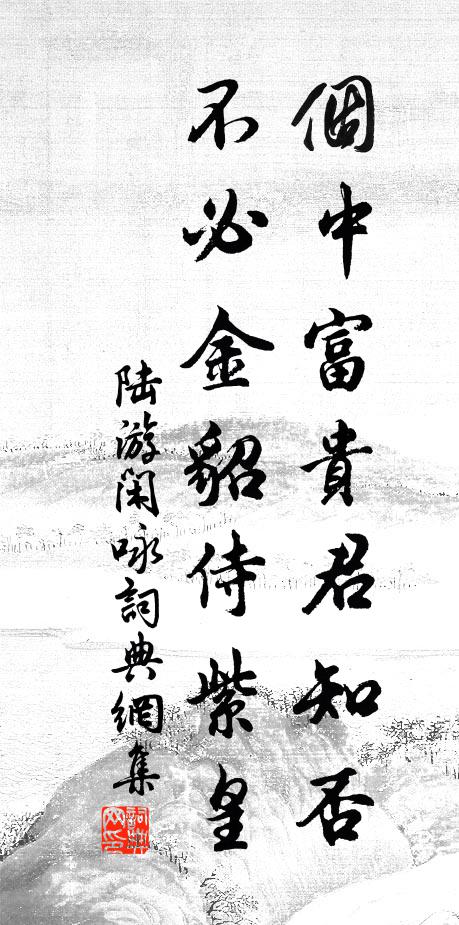 個中富貴君知否
不必金貂侍紫皇
陸游閑咏詞典網集